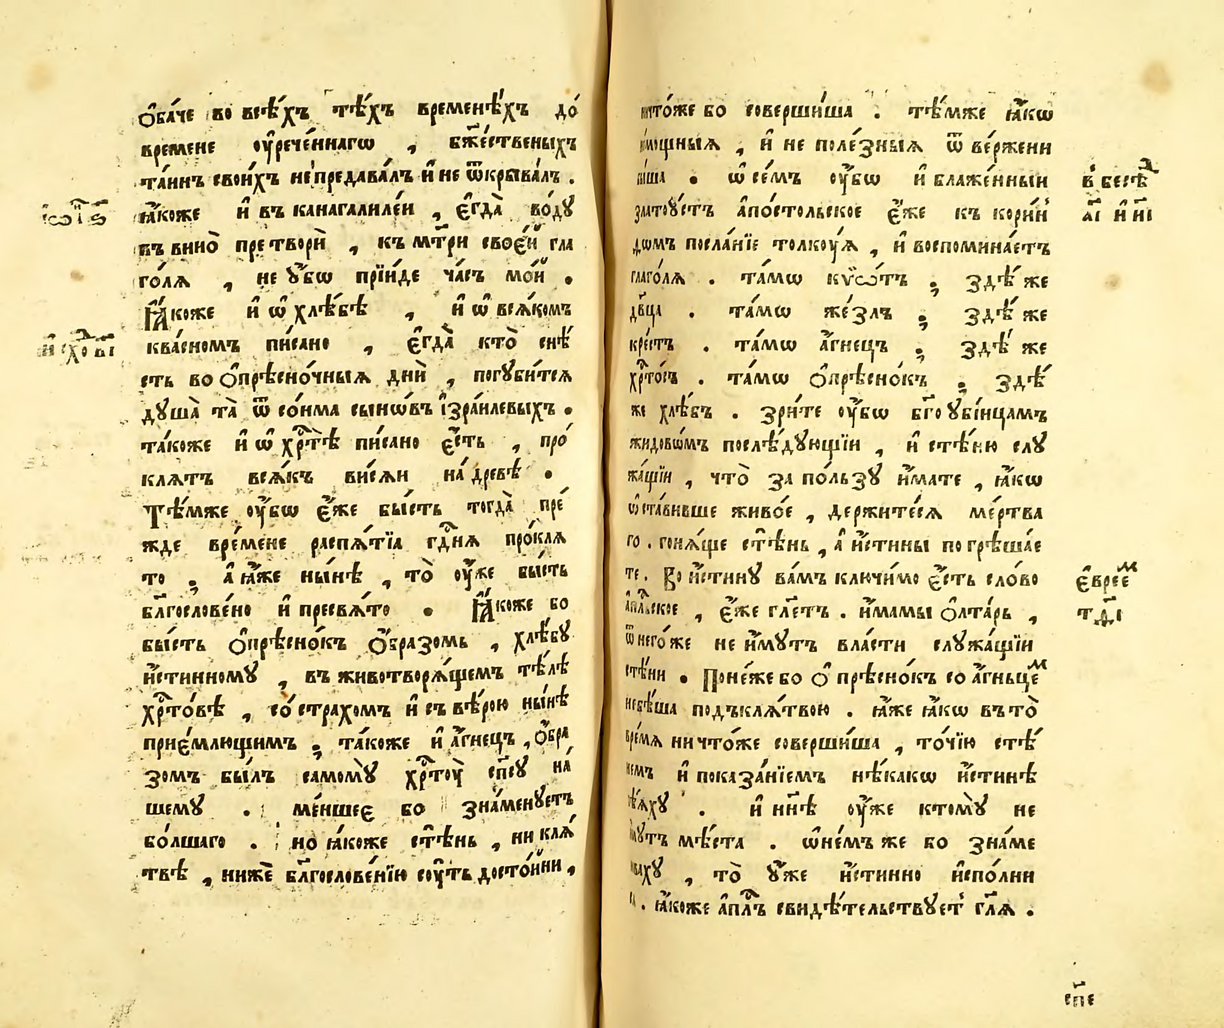 ѻ҆ба́че во всѣ́хъ тѣ́хъ временѣ́хъ до́
времене ᲂу҆рече́ннагѡ , бж҃ественыхъ
та́инъ свои́хъ не предава́лъ и҆ не ѿкрыва́лъ .
і҆ѡ҃ ѕ҃
ꙗ҆́коже и҆ въ канагалиле́и , є҆гда̀ во́дꙋ
въ вино̀ претворѝ , къ мт҃ри свое́й гла
го́лѧ , не ᲂу҆́бѡ прїи́де ча́съ мо́й .
Ꙗ҆́коже и҆ ѡ҆ хлѣ́бѣ , и҆ ѡ҆ всѧ́комъ
исхо в҃і
ква́сномъ пи́сано , є҆гда̀ кто̀ снѣ́
сть во ѻ҆прѣсно́чныѧ днѝ , погꙋби́тсѧ
дꙋша̀ та̀ ѿ со́нма сыно́въ і҆зра́илевыхъ .
та́коже и҆ ѡ҆ хрⷭ҇тѣ̀ пи́сано є҆́сть , про́
клѧтъ всѧ́къ висѧ́и на́ древѣ .
Тѣ́мже ᲂу҆́бѡ є҆́же бы́сть тогда̀ пре́
жде вре́мене распѧ́тїа гдⷭ҇нѧ про́клѧ
то , а҆ ꙗ҆́же ны́нѣ , то̀ ᲂу҆́же бы́сть
блг҃ослове́но и҆ пресвѧ́то . Ꙗ҆́коже бо
бы́сть ѻ҆прѣсно́къ ѻ҆́бразомъ , хлѣ́бꙋ
и҆́стинномꙋ , въ животворѧ́щемъ тѣ́лѣ
хрⷭ҇то́вѣ , со́ страхомъ и҆ съ вѣ́рою ны́нѣ
прие́млющимъ , та́коже и҆ а҆́гнецъ , ѻ҆́бра
зомъ бы́лъ самомꙋ̀ хрⷭ҇тꙋ̀ сп҃сꙋ на́
шемꙋ . ме́ншее бо зна́менꙋетъ
бо́лшаго . но ꙗ҆́коже стѣ́нь , ни клѧ́
твѣ , нижѐ блг҃ослове́нїю сꙋ́ть досто́йни ,
ничто́же бо соверши́ша . тѣ́мже ꙗ҆́кѡ
не́мощныѧ , и҆ не поле́зныѧ ѿ ве́ржени
бы́ша . ѡ҆ се́мъ ᲂу҆́бѡ и҆ блаже́нный
в бесѣⷣ
златоꙋ́стъ а҆по́стольское є҆́же къ кори́н
а҃і и҆ и҃і
ѳѡмъ посла́нїе толкꙋ́ѧ , и҆ воспомина́етъ
глаго́лѧ . та́мѡ кѵѡ́тъ , здѣ́ же
дв҃ца . та́мѡ же́злъ , здѣ́ же
крⷭ҇тъ . та́мѡ а҆́гнецъ , здѣ́ же
хрⷭ҇то́съ . та́мѡ ѻ҆прѣсно́къ , здѣ́
же хлѣ́бъ . зри́те ᲂу҆́бѡ бг҃оᲂубі́йцамъ
жидовѡ́мъ послѣ́дꙋющїи , и҆ стѣ́ню слꙋ
жа́щїи , что̀ за по́льзꙋ и҆́мате , ꙗ҆́кѡ
ѡ҆ста́вивше живо́е , держите́сѧ ме́ртва
го . гонѧ́ще стѣ́нь , а҆ и҆́стины погрѣша́е
те . Во и҆́стинꙋ ва́мъ ключи́мо є҆́сть сло́во
є҆вре́еⷨ
а҆пⷭ҇льское , є҆́же гл҃етъ . и҆́мамы ѻ҆лта́рь ,
тд҃і
ѿ него́же не и҆́мꙋтъ вла́сти слꙋжа́щїи
стѣ́ни . Поне́же бо ѻ҆ прѣсно́къ со а҆́гньцеⷨ
не бѣ́ша подъ клѧ́твою . ꙗ҆́же ꙗ҆́кѡ въ то̀
вре́мѧ ничто́же соверши́ша , то́чїю стѣ́
немъ и҆ показа́нїемъ нѣ́какѡ и҆́стинѣ
бѧ́хꙋ . и҆ нн҃ѣ ᲂу҆́же ктомꙋ̀ не
и҆́мꙋтъ мѣ́ста . ѡ҆ не́мъ же бо зна́ме
новахꙋ , то̀ ᲂу҆́же и҆́стинно и҆спо́лни
. ꙗ҆́коже а҆пⷭ҇лъ свидѣ́тельствꙋетъ гл҃ѧ .
сп҃е